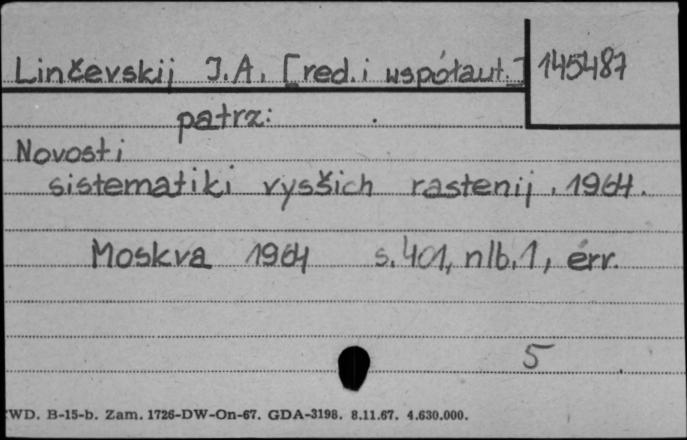 Linčevskij J.A. [red. i współaut.] 145487
patrz:
Novosti
sistematiki vysšich rastenij. 1964.
Moskva 1964 s. 401, nlb. 1, err.
5
WD. B-15-b. Zam. 1726-DW-On-67. GDA-3198. 8.11.67. 4.630.000.